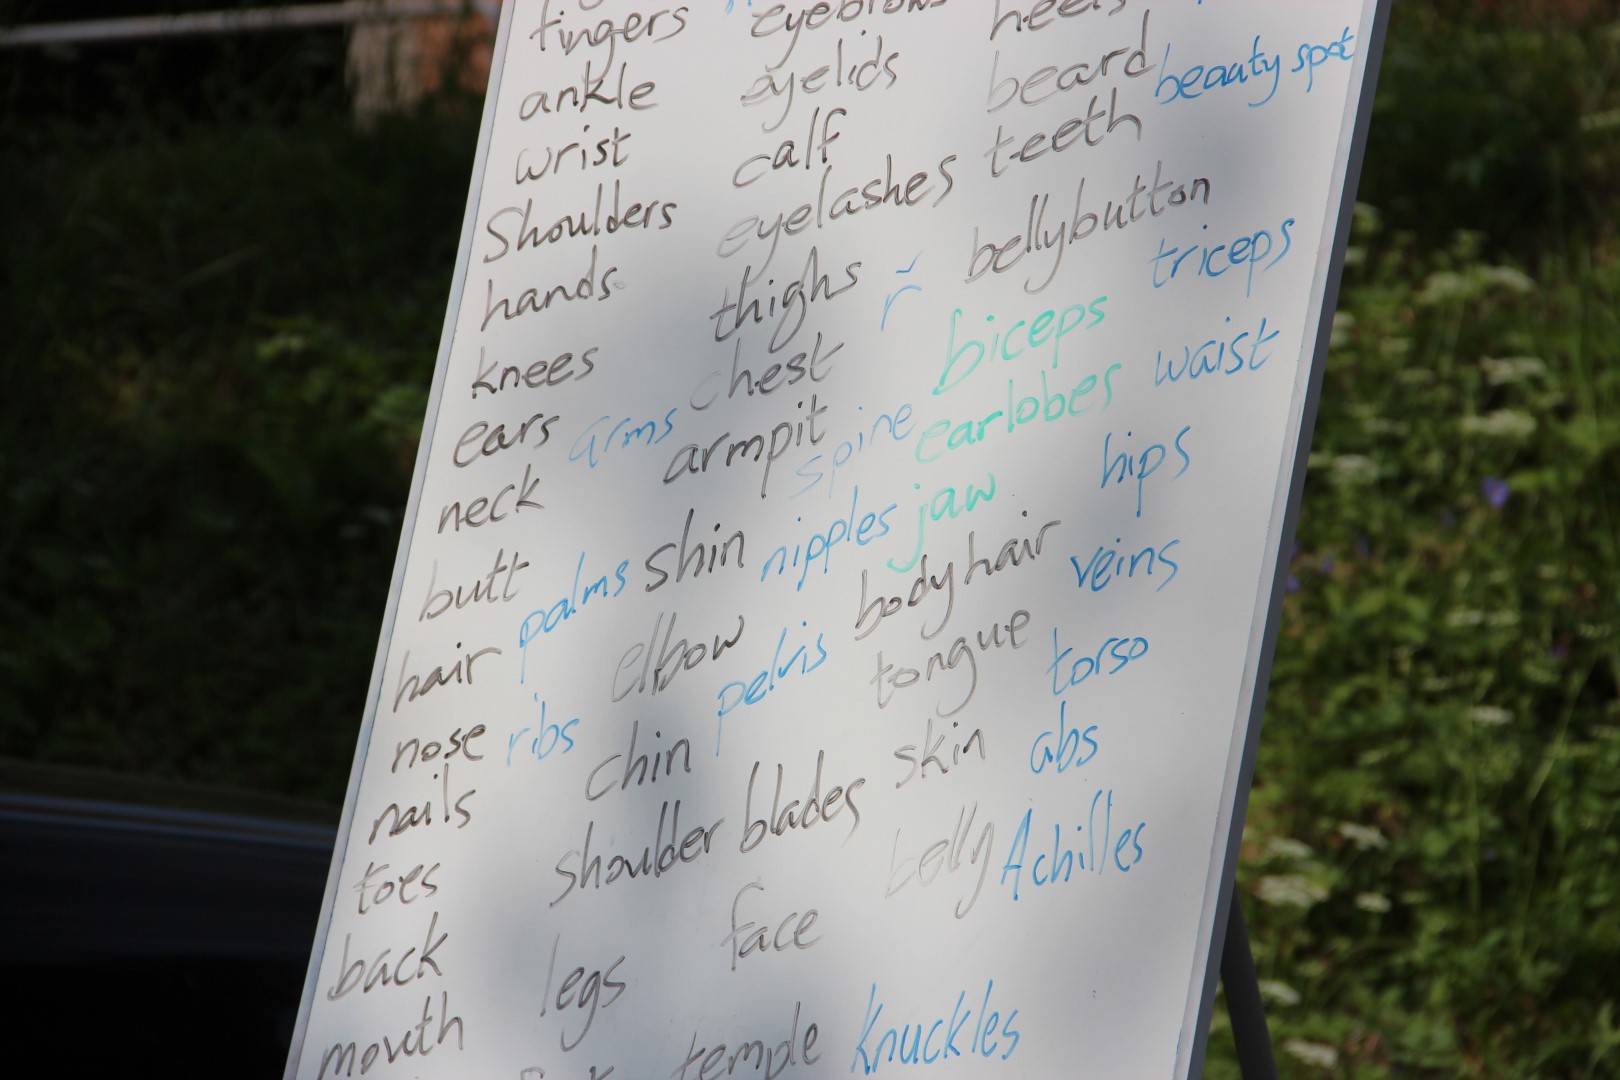 fingers eyebrows heels
ankle eyelids beard beauty spot
wrist calf teeth
Shoulders eyelashes bellybutton
hands thighs ř triceps
knees chest biceps
ears arms armpit spine earlobes waist
neck shin nipples jaw hips
butt palms elbow bodyhair veins
hair pelvis tongue torso
nose ribs chin skin abs
nails shoulder blades belly Achilles
toes face
back legs
mouth temple knuckles